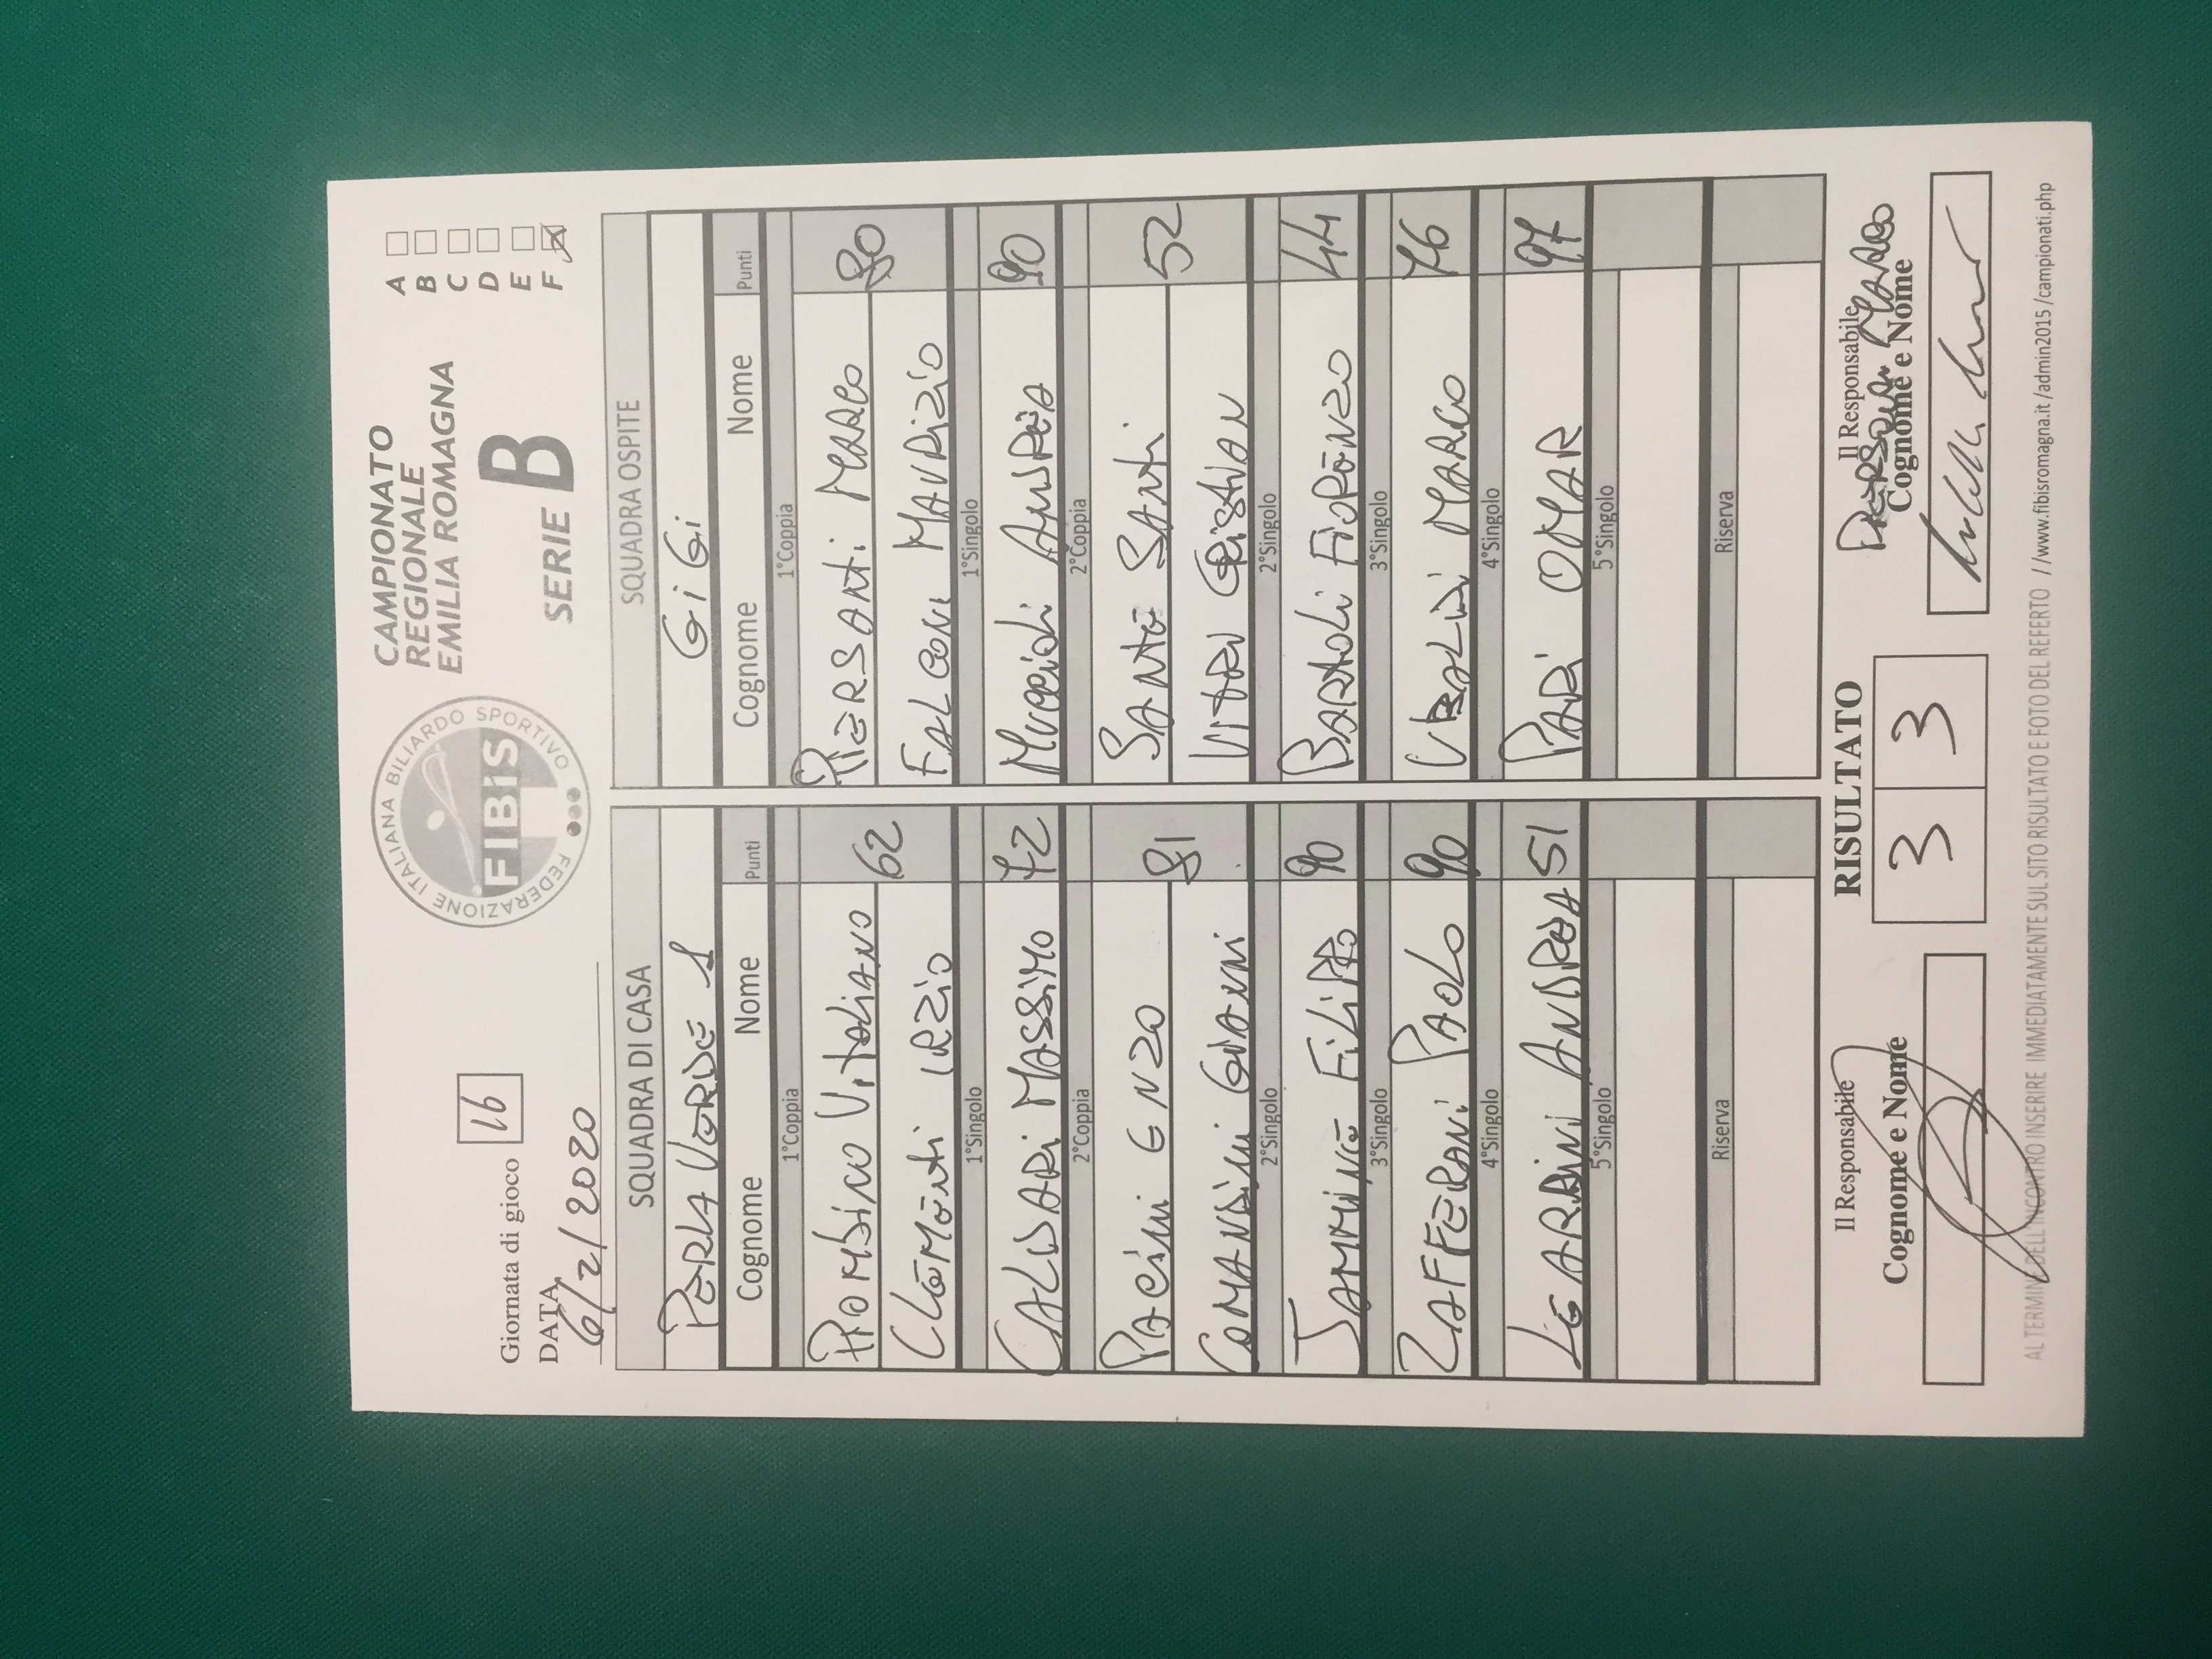 Giornata di gioco 16
DATA
6/2/2020
FEDERAZIONE ITALIANA BILIARDO SPORTIVO
FIBiS
CAMPIONATO
REGIONALE
EMILIA ROMAGNA
SERIE B
A
B
C
D
E
F X
SQUADRA DI CASA
PERLA VERDE 1
Cognome Nome Punti
1°Coppia
PIOMBINO VITALIANO 62
CLEMENTI IRZIO
1°Singolo
CALISARI MASSIMO 72
2°Coppia
PACINI ENZO 81
COMANDINI GIANNI
2°Singolo
FILIPPO 90
3°Singolo
ZAFFERANI PAOLO 90
4°Singolo
LEARDINI ANDREA 51
5°Singolo
Riserva
SQUADRA OSPITE
GiGi
Cognome Nome Punti
1°Coppia
PIERSANTI MARCO 80
FALCONI MAURIZIO
1°Singolo
MUCCIOLI ANDREA 90
2°Coppia
SANTE SANTI 52
VITARI CRISTIAN
2°Singolo
BARTOLI FIORENZO 44
3°Singolo
UBALDI MARCO 76
4°Singolo
PARI OMAR 97
5°Singolo
Riserva
Il Responsabile
Cognome e Nome
RISULTATO
3 3
Il Responsabile
PIERSANTI MARCO
Cognome e Nome
AL TERMINE DELL'INCONTRO INSERIRE IMMEDIATAMENTE SUL SITO RISULTATO E FOTO DEL REFERTO //www.fibisromagna.it/admin2015/campionati.php